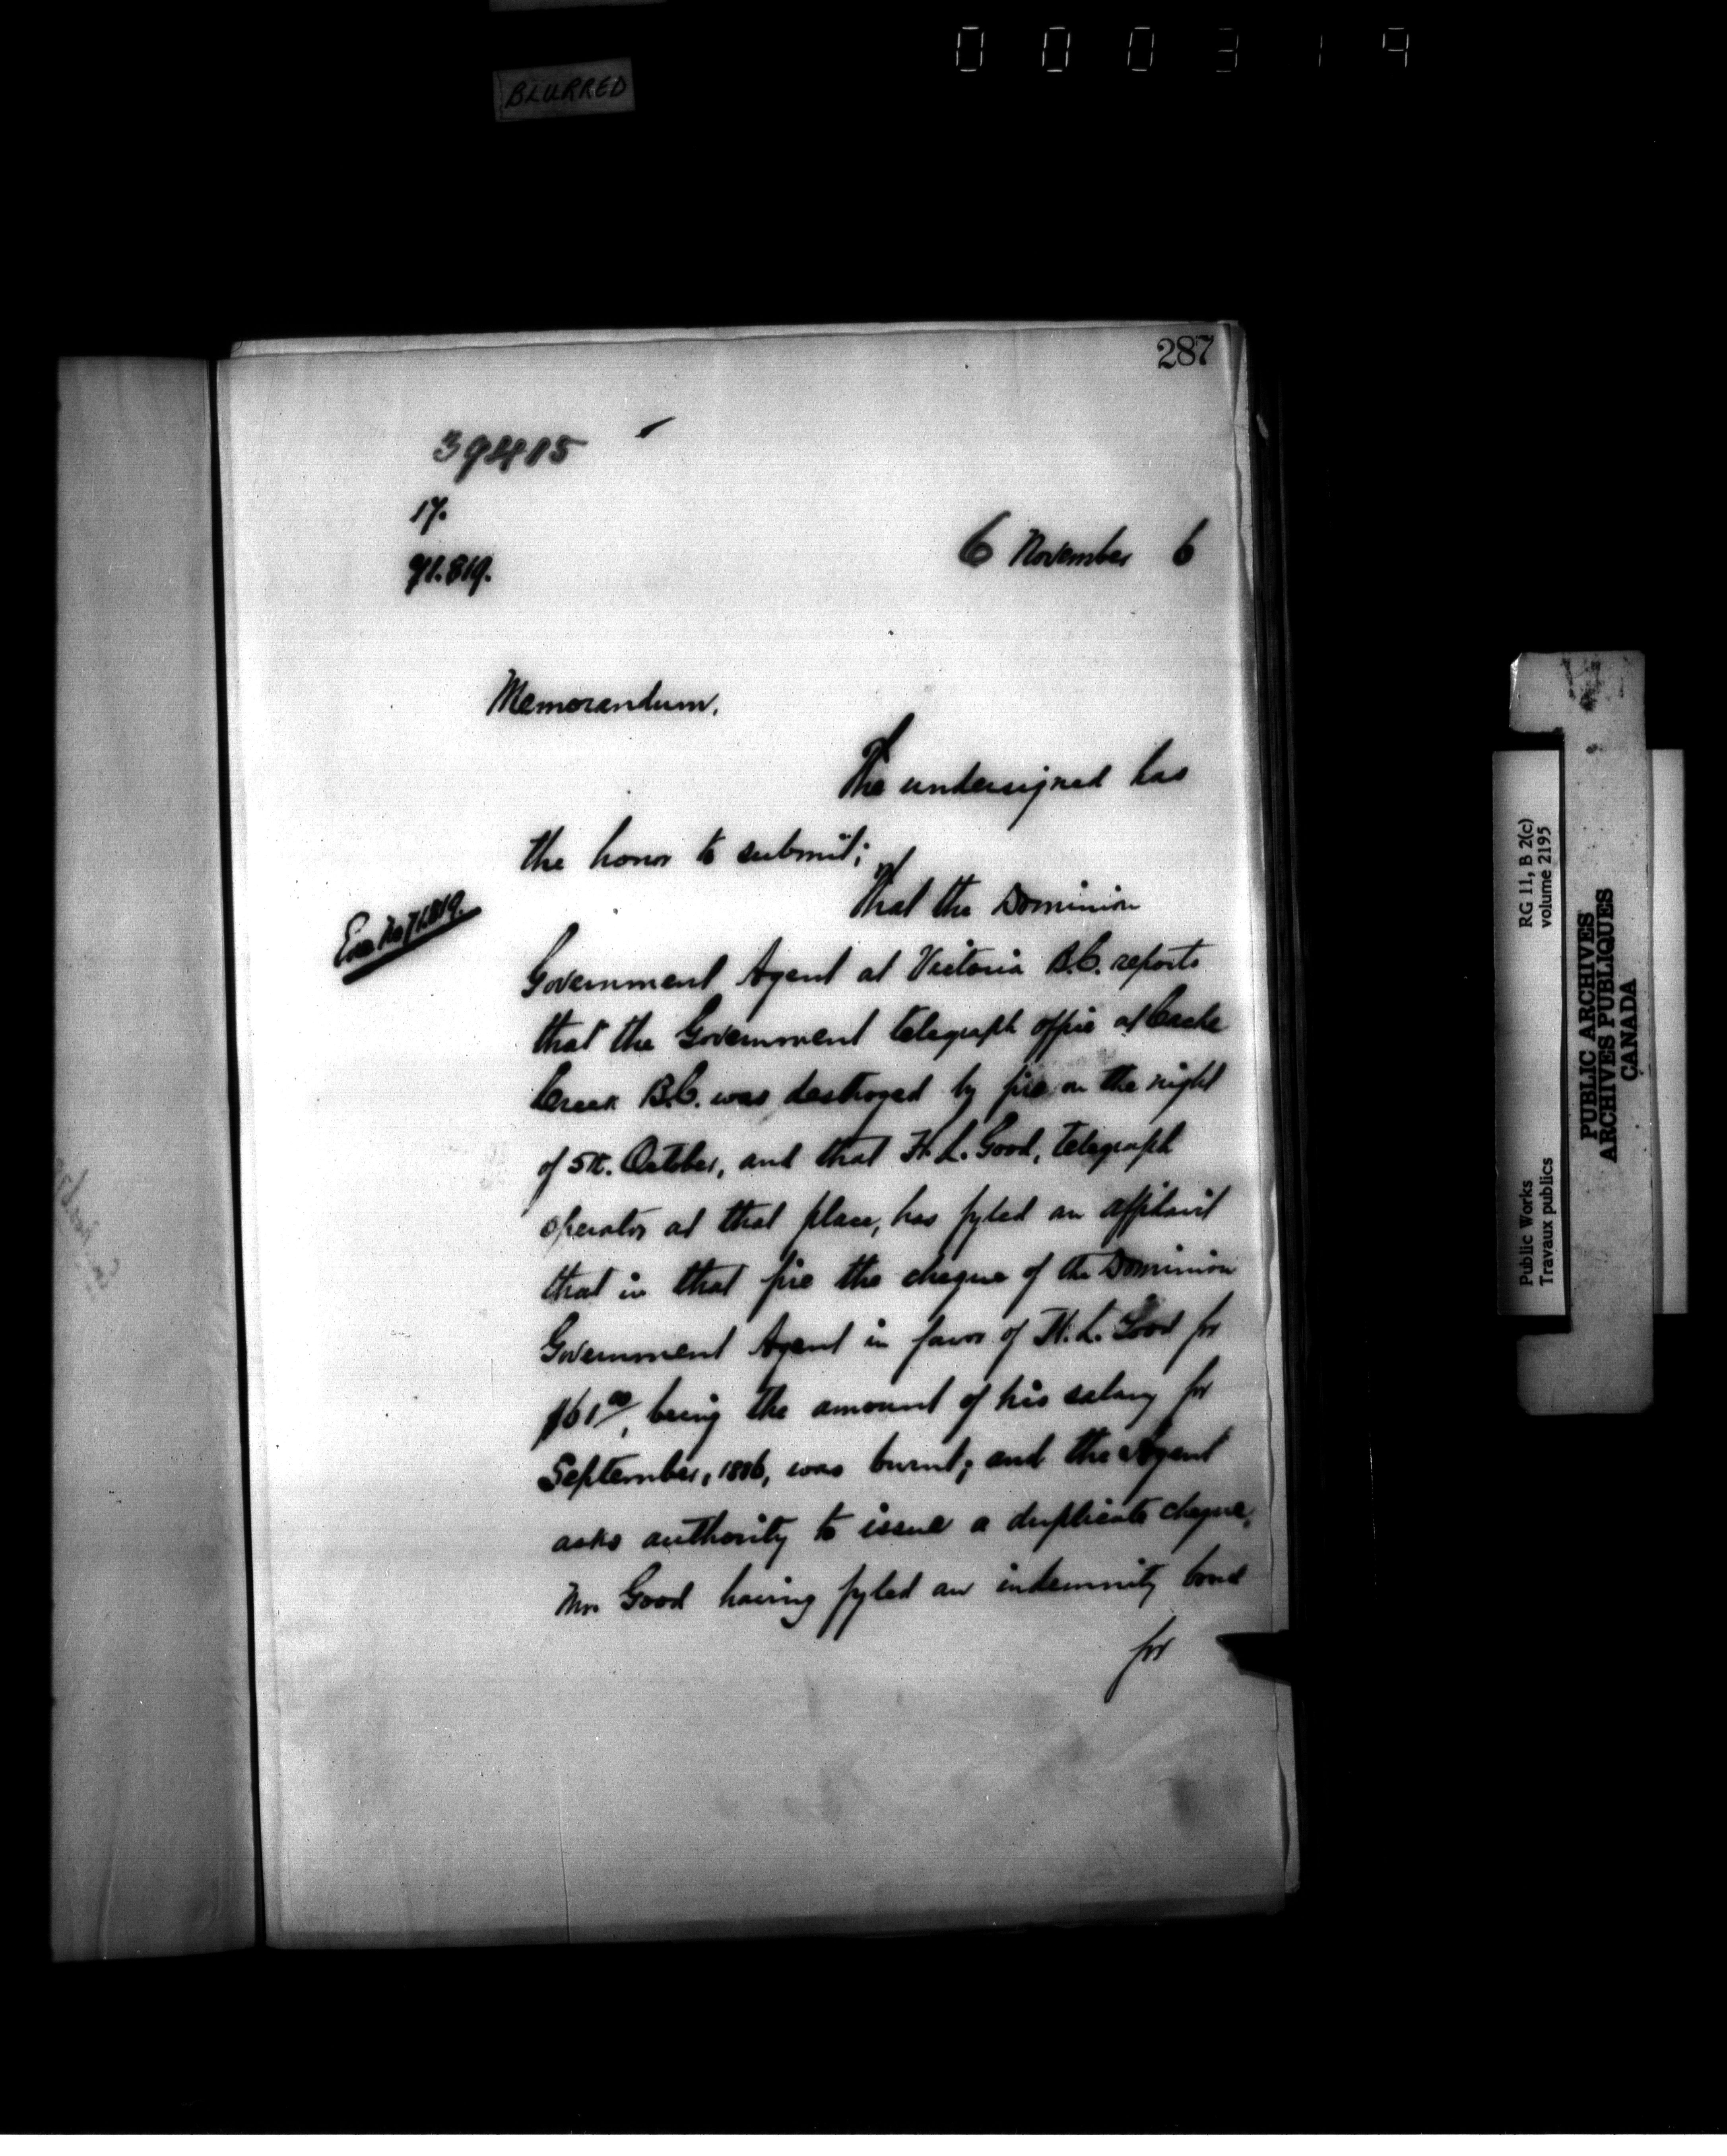 000319
BLURRED
287
39415
17.
71.819.
6 November 6
Memorandum.
The undersigned has
the honor to submit;
That the Dominion
Enc. No 71.819.
Government Agent at Victoria B.C. reports
that the Government telegraph office at Cache
Creek B.C. was destroyed by fire on the night
of 5th. October, and that H. L. Good, telegraph
operator at that place, has fyled an affidavit
that in that fire the cheque of the Dominion
Government Agent in favor of H. L. Good for
$61 00/, being the amount of his salary for
September, 1886, was burnt; and the Agent
asks authority to issue a duplicate cheque,
Mr. Good having fyled an indemnity bond
for
Public Works
Travaux publics
RG 11, B 2(c)
volume 2195
PUBLIC ARCHIVES
ARCHIVES PUBLIQUES
CANADA